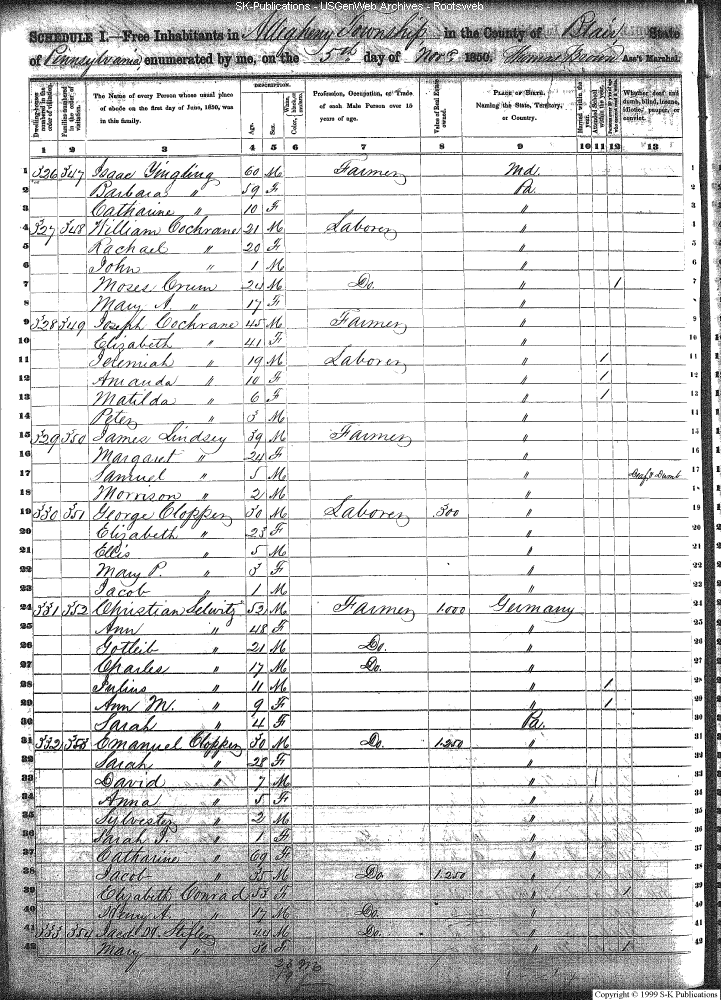 SK-Publications - USGenWeb Archives - Rootsweb
SCHEDULE I.—Free Inhabitants in Allegheny Township in the County of Blair State
of Pennsylvania enumerated by me, on the 5th day of Novr 1850. Thomas Brown Ass't Marshal.
Dwelling-houses numbered in the order of visitation. Families numbered in the order of visitation. The Name of every Person whose usual place of abode on the first day of June, 1850, was in this family. DESCRIPTION. Age. Sex. Color, White, black, or mulatto. Profession, Occupation, or Trade of each Male Person over 15 years of age. Value of Real Estate owned. PLACE OF BIRTH. Naming the State, Territory, or Country. Married within the year. Attended School within the year. Whether deaf and dumb, blind, insane, idiotic, pauper, or convict.
1 2 3 4 5 6 7 8 9 10 11 12 13
1 326 347 Isaac Yingling 60 M Farmer Md. 1
2 Barbara " 59 F Pa. 2
3 Catharine " 10 F " 3
4 327 348 William Cochrane 21 M Laborer " 4
5 Rachael " 20 F " 5
6 John " 1 M " 6
7 Moses Crum 24 M Do. " 1 7
8 Mary A " 17 F " 8
9 328 349 Joseph Cochrane 45 M Farmer " 9
10 Elizabeth " 41 F " 10
11 Jeremiah " 19 M Laborer " 1 11
12 Amanda " 10 F " 1 12
13 Matilda " 6 F " 1 13
14 Peter " 3 M " 14
15 329 350 James Lindsey 39 M Farmer " 15
16 Margaret " 24 F " 16
17 Samuel " 5 M " Deaf & Dumb 17
18 Morrison " 2 M " 18
19 330 351 George Clopper 30 M Laborer 300 " 19
20 Elizabeth " 23 F " 20
21 Ellis " 5 M " 21
22 Mary P. " 3 F " 22
23 Jacob " 1 M " 23
24 331 352 Christian Selwitz 52 M Farmer 1000 Germany 24
25 Ann " 48 F " 25
26 Gotleib " 21 M Do. " 26
27 Charles " 17 M Do. " 27
28 Julius " 11 M " 1 28
29 Ann M. " 9 F " 1 29
30 Sarah " 4 F Pa. 30
31 332 353 Emanuel Clopper 30 M Do. 1250 " 31
32 Sarah " 28 F " 32
33 David " 7 M " 33
34 Anna " 5 F " 34
35 Sylvester " 2 M " 35
36 Sarah J. " 1 F " 36
37 Catharine " 69 F " 37
38 Jacob " 35 M Do. 1250 " 38
39 Elizabeth Conrad 53 F " 1 39
40 Henry A. " 17 M Do. " 40
41 333 354 Jacob W. Stifler 44 M Do. " 41
42 Mary " 30 F " 1 42
Copyright © 1999 S-K Publications